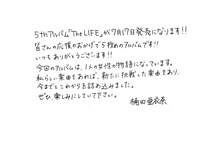 5thアルバム「The LIFE」が7月17日発売になります!!
皆さんの応援のおかげで5枚目のアルバムです!!
いつもありがとうございます!!
今回のアルバムは、1人の女性の物語になっています。
私らしい楽曲もあれば、新たに挑戦した楽曲もあり、
今までとこれからを詰め込みました。
ぜひ、楽しみにしていて下さい。
楠田亜衣奈